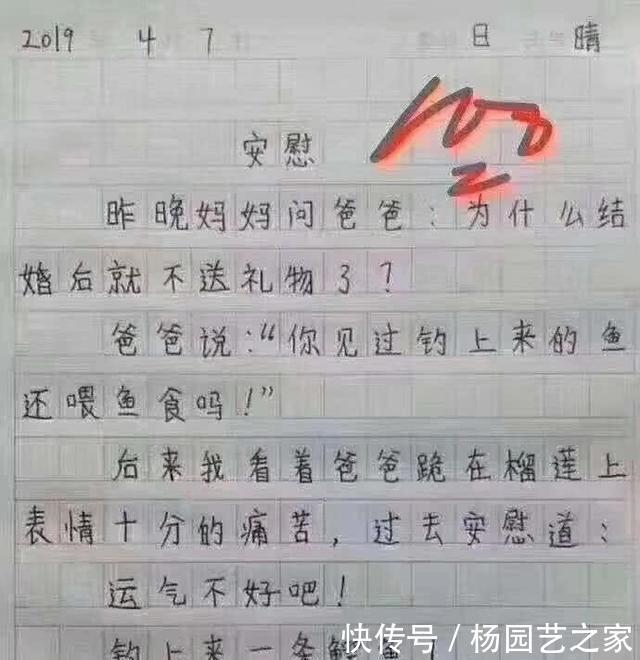 2019 4 7 日 晴
100
安慰
昨晚妈妈问爸爸：为什么结
婚后就不送礼物了？
爸爸说：“你见过钓上来的鱼
还喂鱼食吗！”
后来我看着爸爸跪在榴莲上
表情十分的痛苦，过去安慰道：
运气不好吧！
钓上来一条
快传号／杨园艺之家